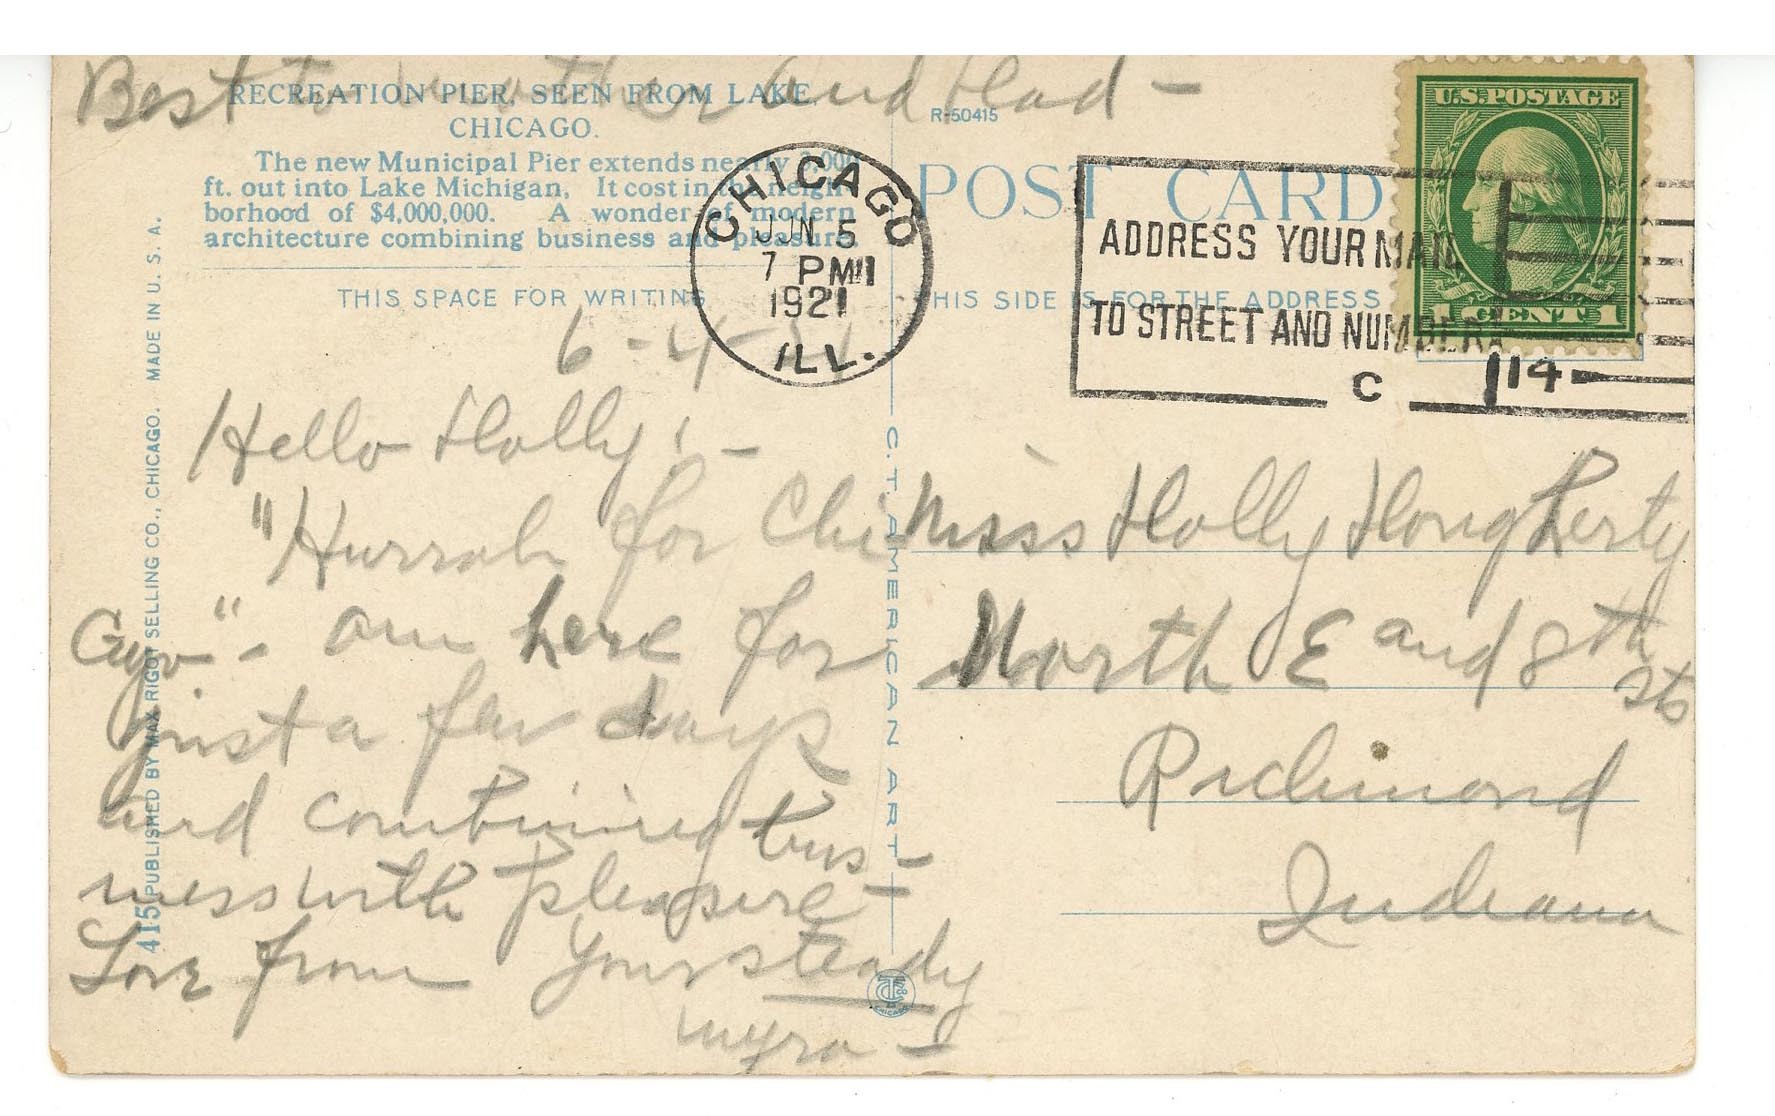 Best to mother and Dad -
RECREATION PIER, SEEN FROM LAKE,
CHICAGO.
The new Municipal Pier extends nearly 3,000
ft. out into Lake Michigan. It cost in the neigh-
borhood of $4,000,000. A wonder of modern
architecture combining business and pleasure.
THIS SPACE FOR WRITING
6-4-21
Hello Holly! -
"Hurrah for Chi
Cago" - am here for
just a few days
and combined bus-
ness with pleasure -
Love from Your steady
Myra -
415 PUBLISHED BY MAX RIGOT SELLING CO., CHICAGO. MADE IN U. S. A.
C. T. AMERICAN ART
CHICAGO
R-50415
POST CARD
THIS SIDE IS FOR THE ADDRESS
CHICAGO
JUN 5
7 PM
1921
ILL.
ADDRESS YOUR MAIL
TO STREET AND NUMBER
C 14
U.S. POSTAGE
1 CENT 1
Miss Holly Hougherty
North E and 8th
sts
Richmond
Indiana